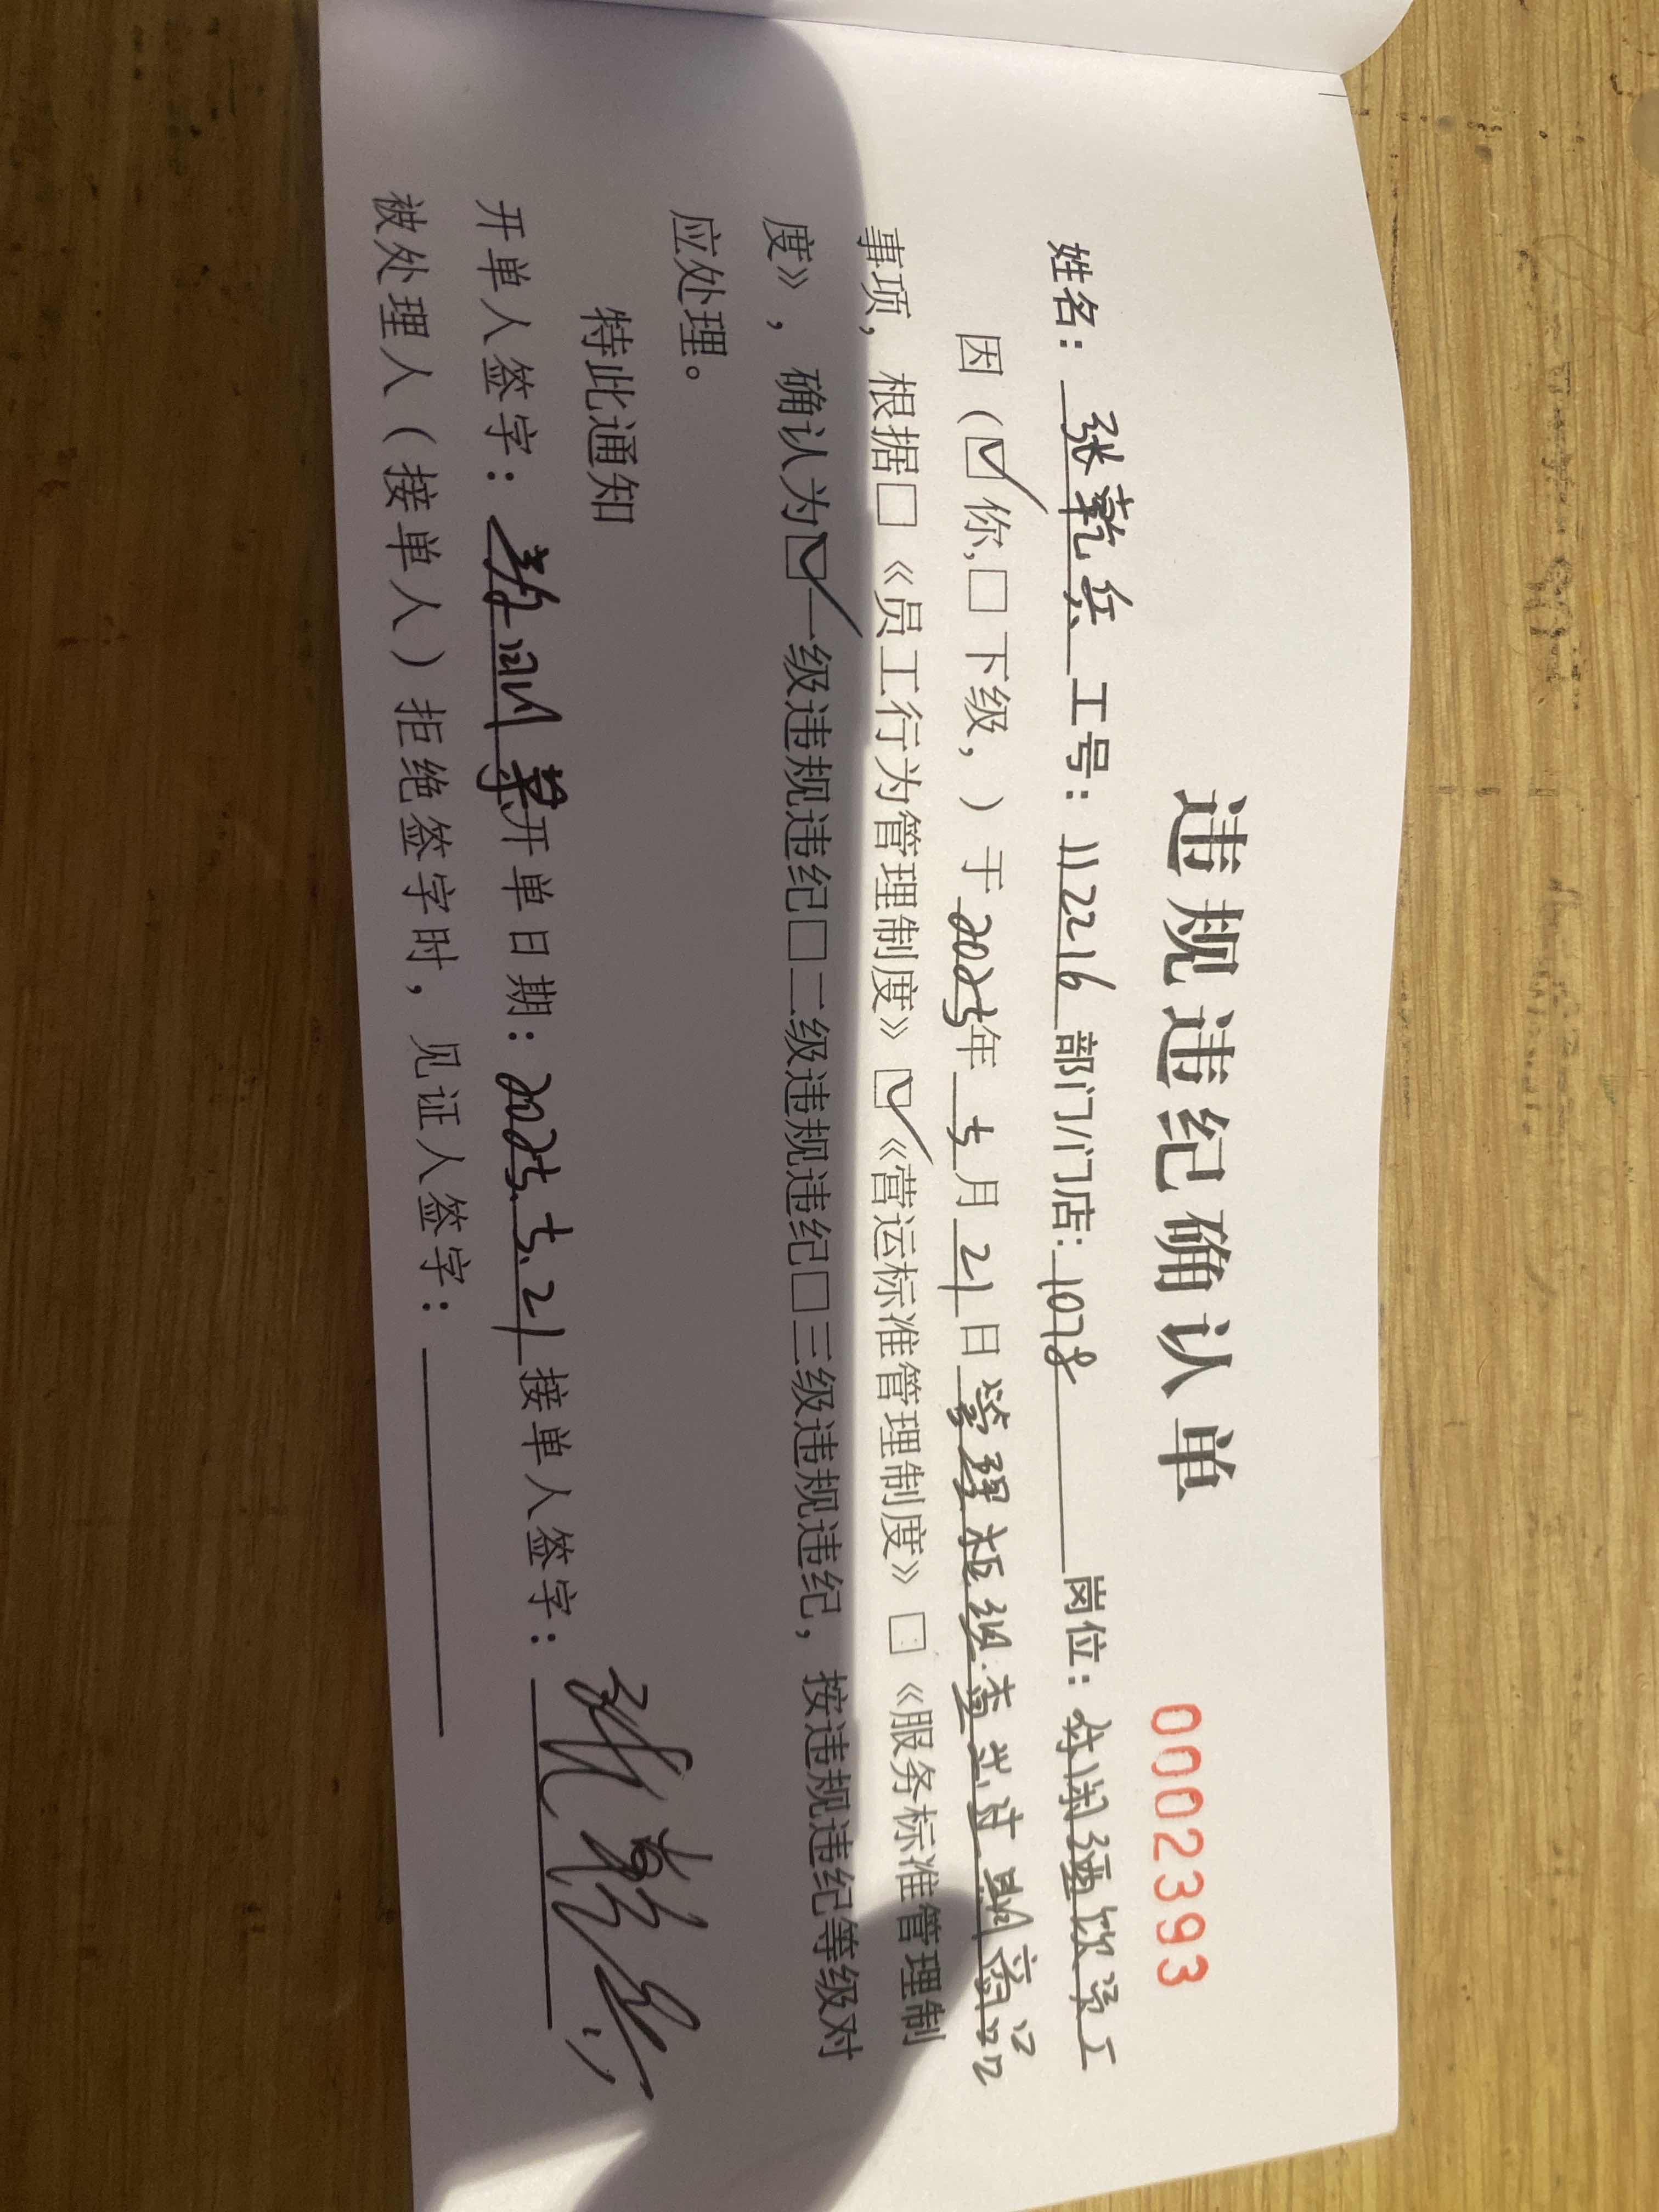 违规违纪确认单
0002393
姓名：张乾兵 工号：112216 部门/门店：1078 岗位：休闲酒饮员工
因（☑你,□下级，）于2025年5月21日 管理杜绝查出过期商品
事项，根据□《员工行为管理制度》☑《营运标准管理制度》□《服务标准管理制
度》，确认为☑一级违规违纪□二级违规违纪□三级违规违纪，按违规违纪等级对
应处理。
特此通知
开单人签字： 开单日期：2025.5.21 接单人签字：
被处理人（接单人）拒绝签字时，见证人签字：